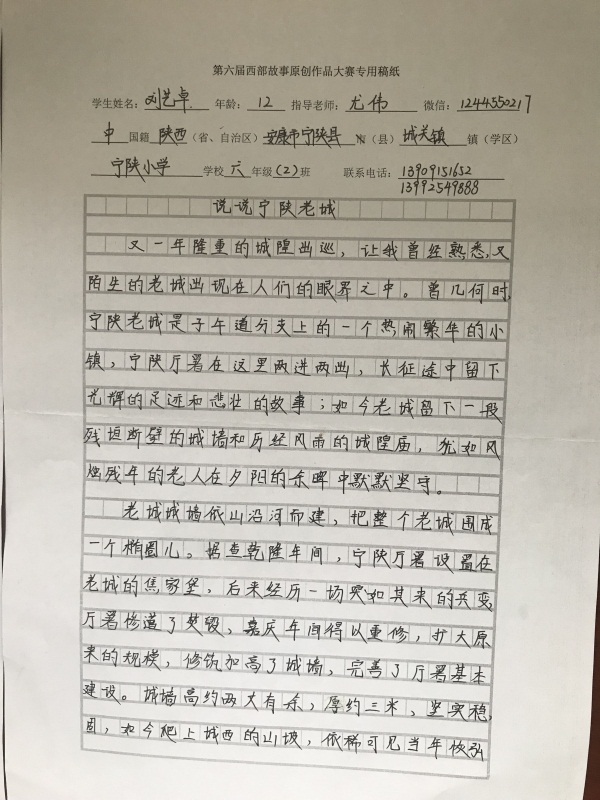 第六届西部故事原创作品大赛专用稿纸
学生姓名：刘艺卓 年龄：12 指导老师：尤伟 微信：1244550217
中 国籍 陕西（省、自治区）安康市宁陕县 市（县）城关镇 镇（学区）
宁陕小学 学校 六 年级（2）班 联系电话：13909151652
13992549888
说说宁陕老城
又一年隆重的城隍出巡，让我曾经熟悉，又
陌生的老城出现在人们的眼界之中。曾几何时，
宁陕老城是子午道分支上的一个热闹繁华的小
镇，宁陕厅署在这里两进两出，长征途中留下
光辉的足迹和悲壮的故事；如今老城留下一段
残垣断壁的城墙和历经风雨的城隍庙，犹如风
烛残年的老人在夕阳的余晖中默默坚守。
老城城墙依山沿河而建，把整个老城围成
一个椭圆儿。据查乾隆年间，宁陕厅署设置在
老城的焦家堡，后来经历一场突如其来的兵变，
厅署惨遭了焚毁，嘉庆年间得以重修，扩大原
来的规模，修筑加高了城墙，完善了厅署基本
建设。城墙高约两丈有余，厚约三米，坚实稳
固，如今爬上城西的山坡，依稀可见当年恢弘